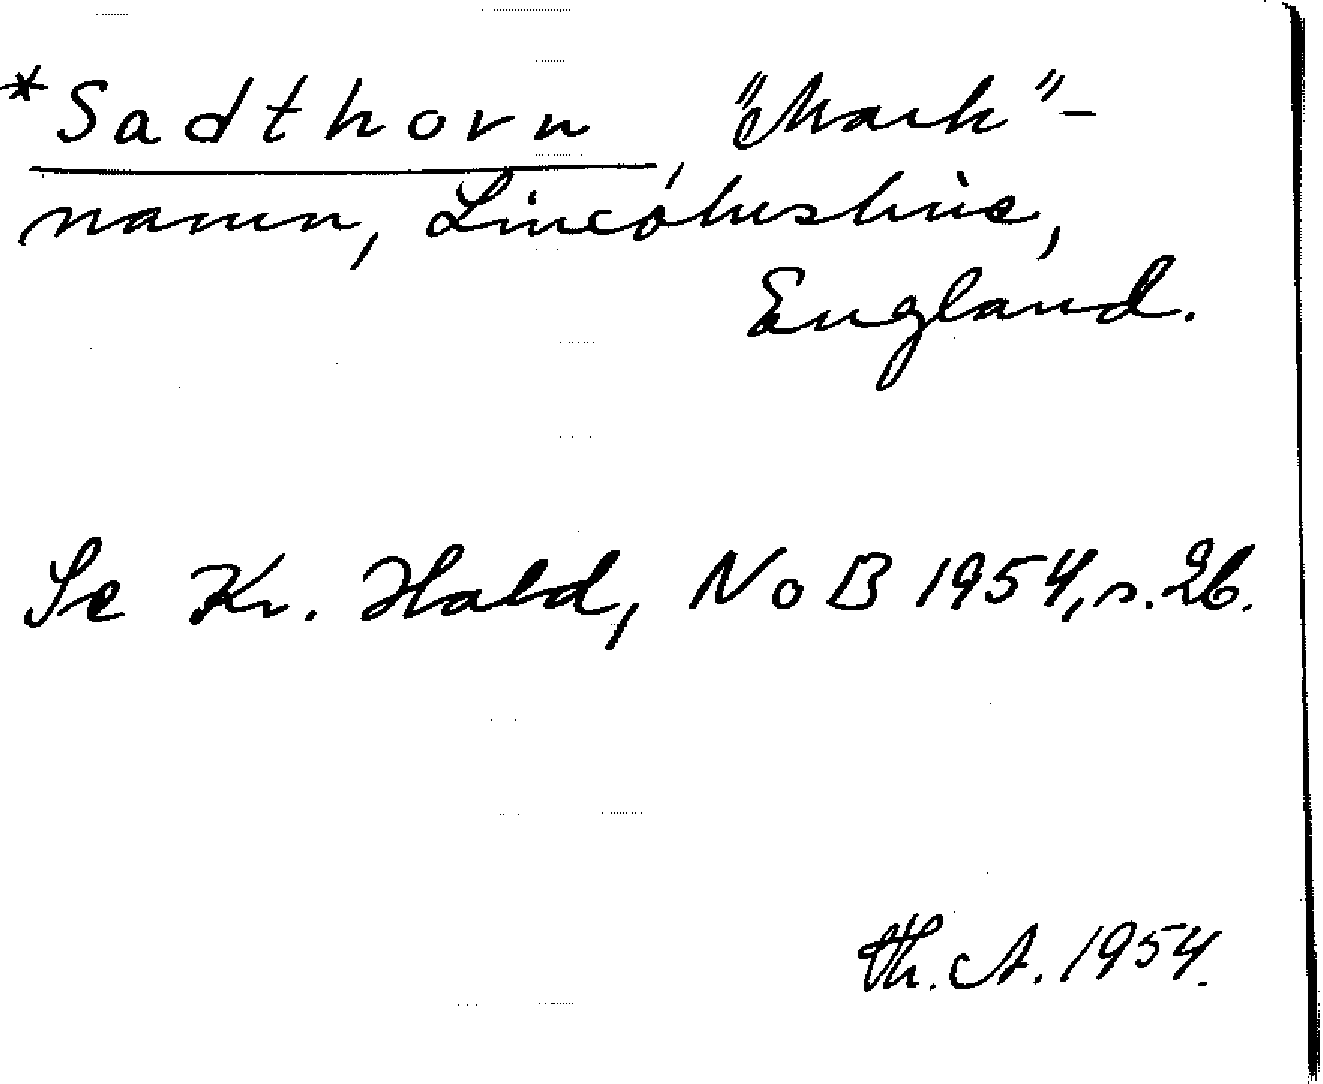 *Sadthorn, "Mark"-
namn, Lincolnshire,
England.
Se Kr. Hald, NoB 1954, s. 26.
Th. A. 1954.